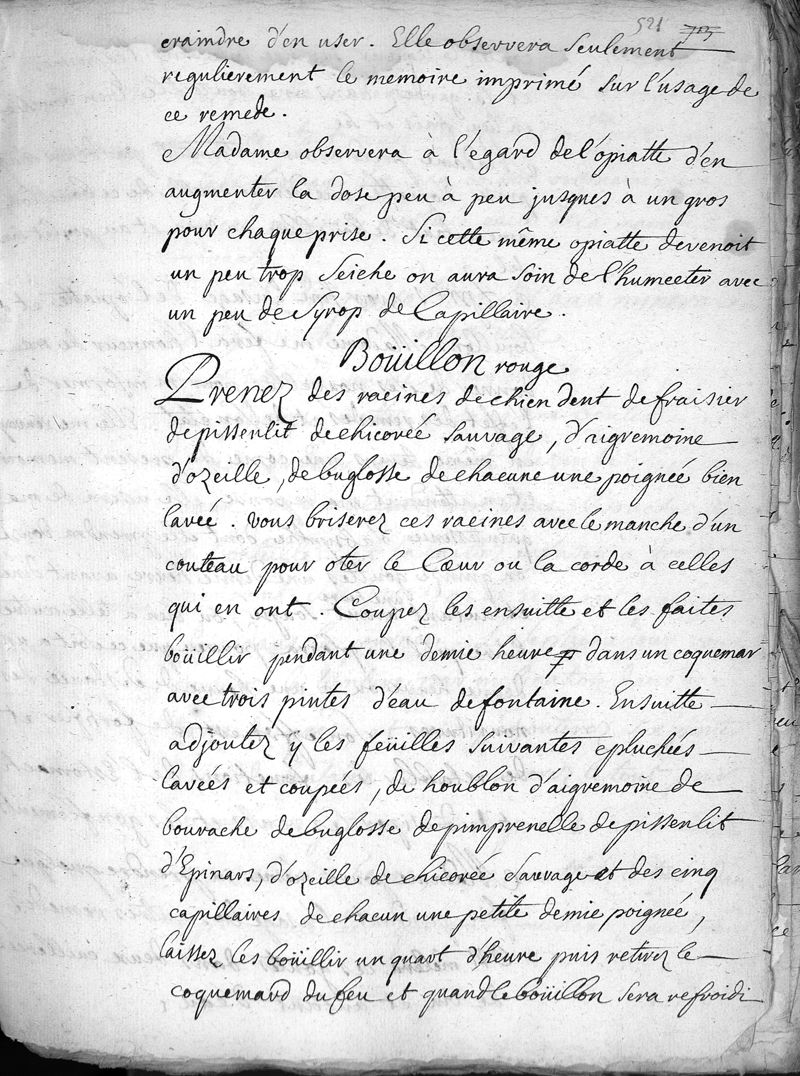 521 713
craindre d'en user. Elle observera seulement
regulierement le memoire imprimé sur l'usage de
ce remede.
Madame observera à l'egard de l'opiatte d'en
augmenter la dose peu à peu jusques à un gros
pour chaque prise. Si cette même opiatte devenoit
un peu trop seiche on aura soin de l'humecter avec
un peu de syrop de Capillaire.
Boüillon rouge
Prenez des racines de chien dent de fraisier
de pissenlit de chicoreé sauvage, d'aigremoine
d'ozeille, de buglosse de chacune une poigneé bien
laveé. vous briserez ces racines avec le manche d'un
couteau pour oter le Cœur ou la corde à celles
qui en ont. Coupez les ensuitte et les faites
boüillir pendant une demie heure dans un coquemar
avec trois pintes d'eau de fontaine. Ensuitte
adjoutez y les feüilles suivantes epluchées
laveés et coupeés, de houblon d'aigremoine de
bourache de buglosse de pimprenelle de pissenlit
d'Epinars, d'ozeille de chicoreé sauvage et des cinq
capillaires de chacun une petite demie poigneé,
laissez les boüillir un quart d'heure puis retirez le
coquemard du feu et quand le boüillon sera refroidi